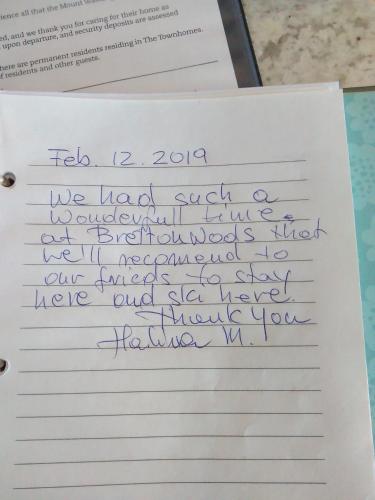 ience all that the Mount Wash
ed, and we thank you for caring for their home as
upon departure, and security deposits are assessed
here are permanent residents residing in The Townhomes.
f residents and other guests.
Feb. 12. 2019
We had such a
wonderfull time
at Brettonwoods that
we'll recomend to
our frieds to stay
here and ski here.
Thank you
Halina M.